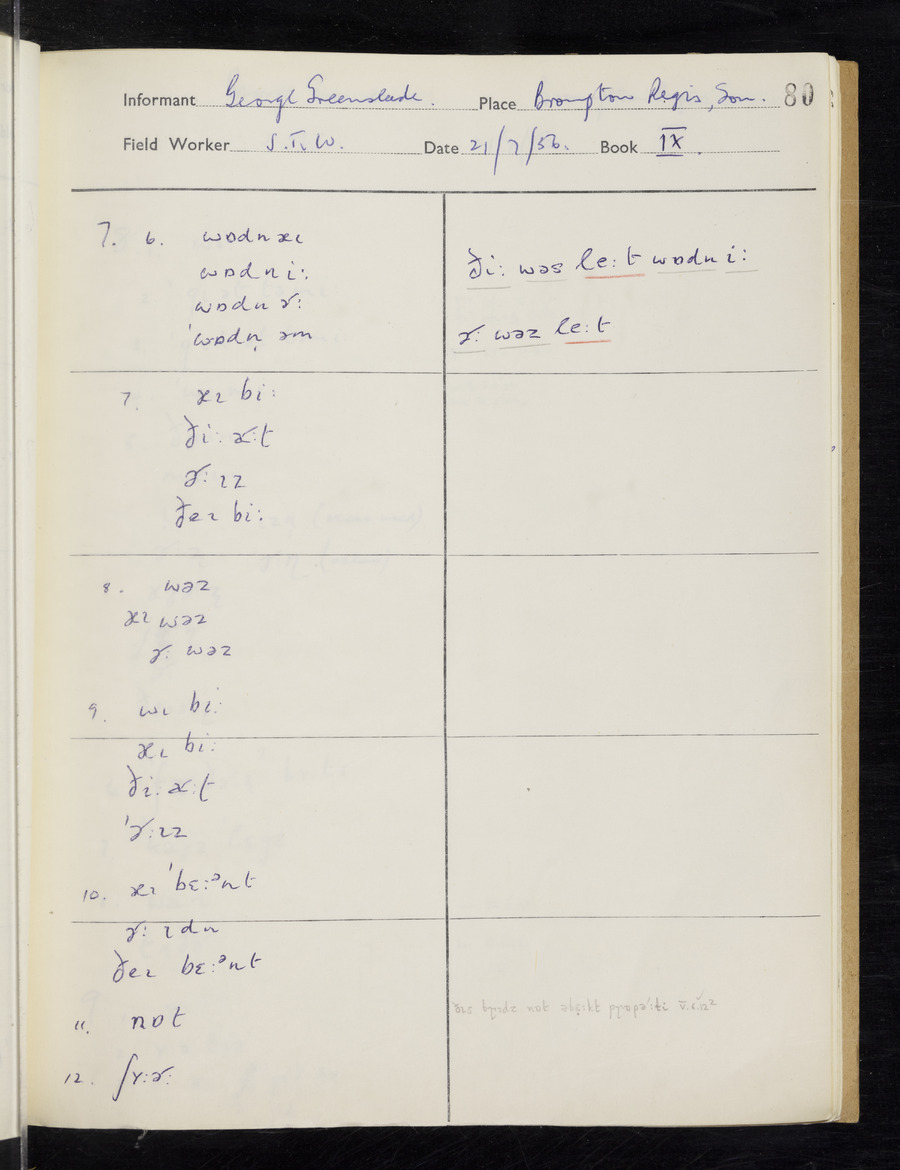 Informant George Greenslade. Place Brompton Regis, Som. 80
Field Worker S.T.W. Date 21/7/56. Book IX.
7. 6. wɒdn æɩ
wɒdn i:
wɒdn ɚ:
'wɒdn̩ əm
ði: wəs le:t wɒdn i:
ɚ: wəz le:t
7. æɩ bi:
ði: æ:t
ɚ: ɩz
ðeɩ bi:
8. wəz
æɩ wəz
ɚ: wəz
9. wɩ bi:
æɩ bi:
ði: æ:t
'ɚ:ɩz
10. æɩ 'bɛ:ᵊnt
ɚ: ɩdn
ðeɩ bɛ:ᵊnt
11. nɒt
12. ʃʏ:ɚ:
not